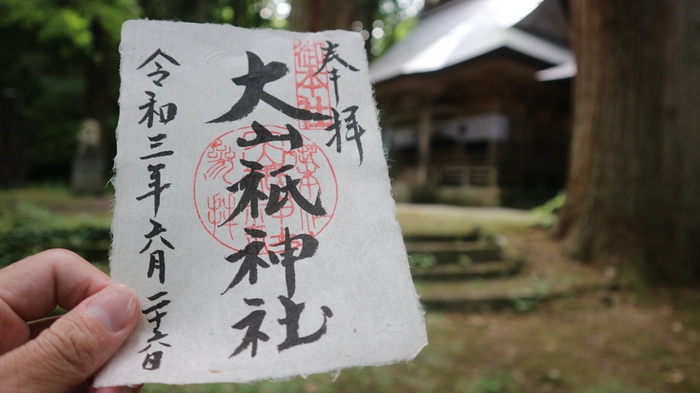 奉拝
大山祇神社
令和三年六月二十六日
御本社